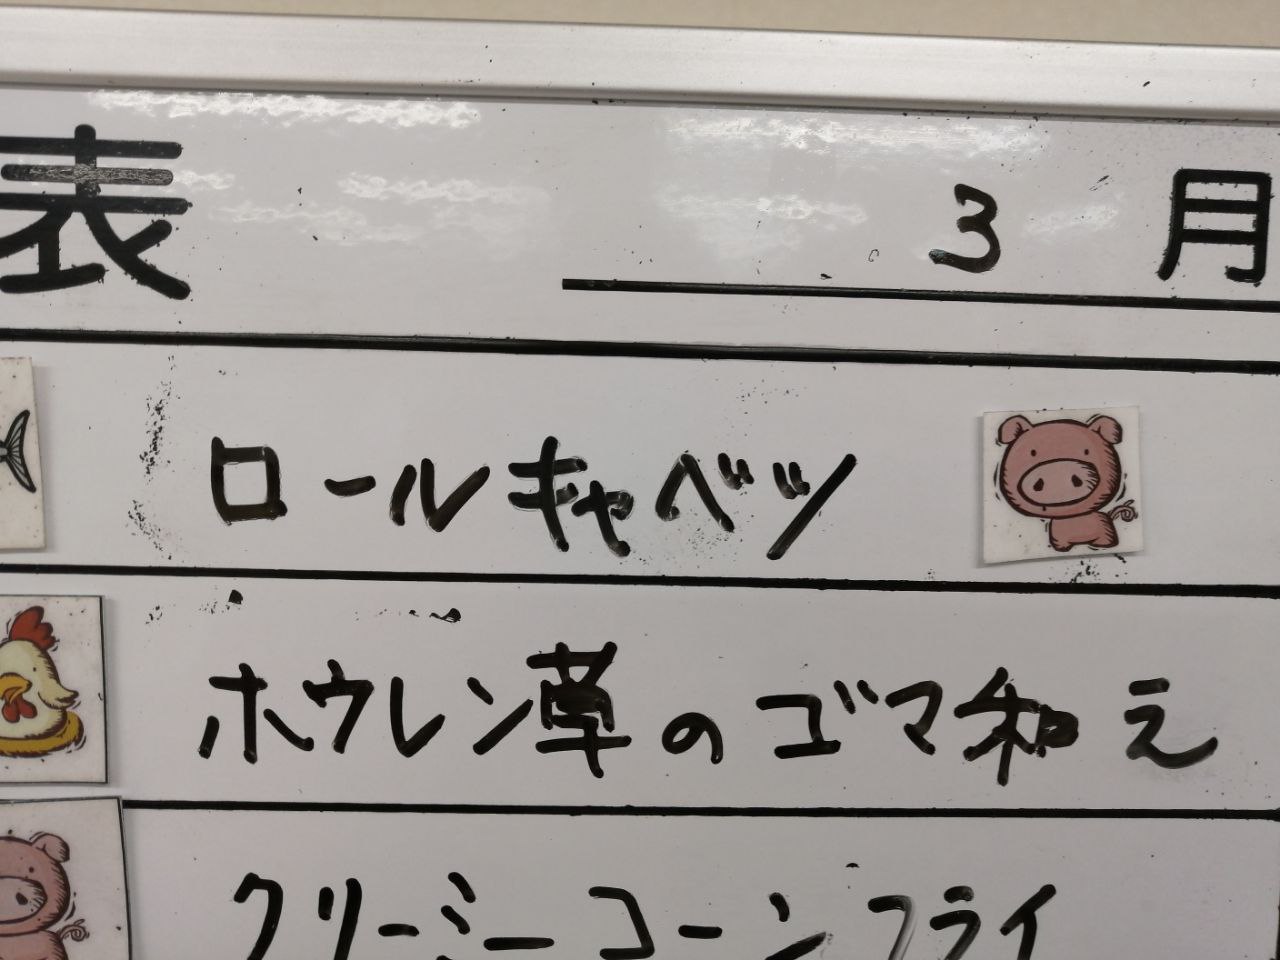 表 3 月
ロールキャベツ
ホウレン草のゴマ和え
クリーミーコーンフライ